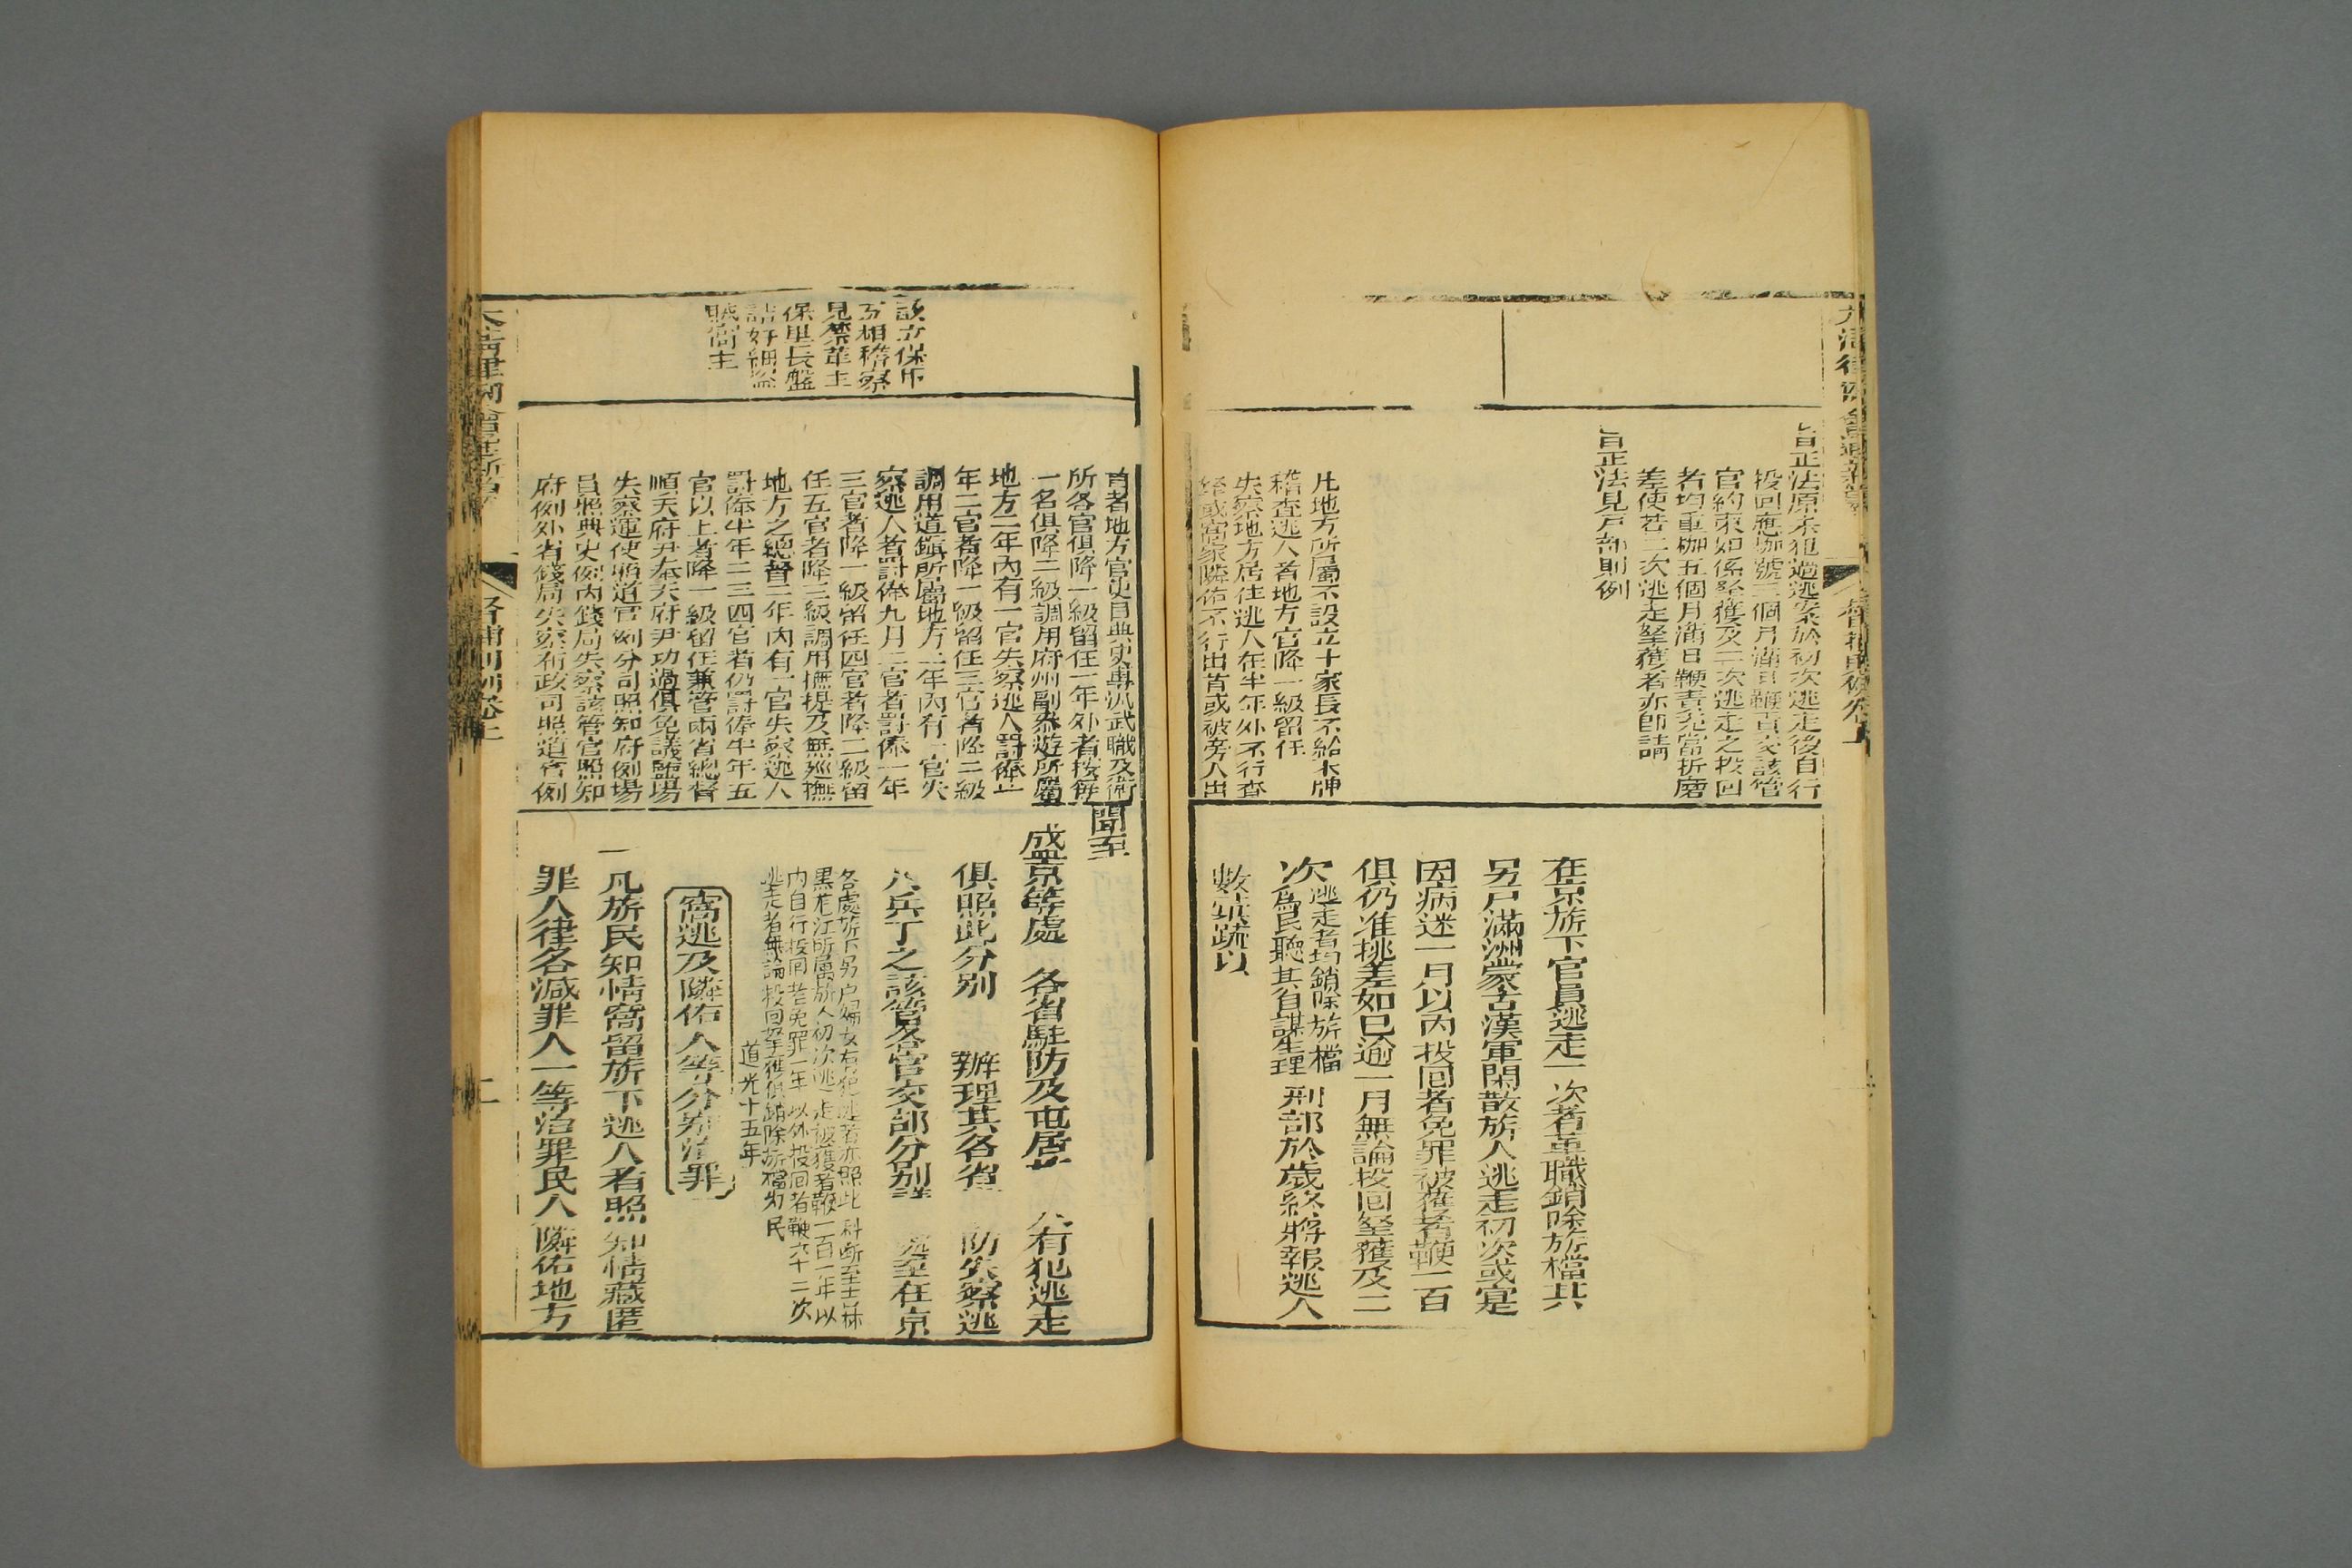 旨正法原未犯過逃案於初次逃走後自行
投回應枷號三個月滿日鞭責交該管
官約束如係拏獲及二次逃走之投回
者均重枷五個月滿日鞭責充當折磨
差使若二次逃走拏獲者亦即請
旨正法見戶部則例
凡地方所屬不設立十家長不給木牌
稽查逃人者地方官降一級留任
失察地方居住逃人在半年外不行查
拏或窩家隣佑不行出首或被旁人出
在京旂下官員逃走一次者革職銷除旂檔其
另戶滿洲蒙古漢軍閑散旂人逃走初次或寔
因病迷一月以內投回者免罪被獲者鞭一百
俱仍准挑差如已逾一月無論投回拏獲及二
次逃走者均銷除旂檔
爲民聽其自謀生理
刑部於歲終將報逃人
數彙疏以
設立保甲
互相稽察
見禁革主
保里長盤
詰奸細盜
賊窩主
首者地方官吏目典史專汛武職及衛
所各官俱降一級留任一年外者按每
一名俱降二級調用府州副叅遊所屬
地方二年內有一官失察逃人罰俸一
年二官者降一級留任三官者降二級
調用道鎭所屬地方二年內有一官失
察逃人者罰俸九月二官者罰俸一年
三官者降一級留任四官者降二級留
任五官者降三級調用撫提及無廵撫
地方之總督二年內有一官失察逃人
罰俸半年二三四官者仍罰俸半年五
官以上者降一級留任兼管兩省總督
順天府尹奉天府尹功過俱免議鹽場
失察運使照道官例分司照知府例場
員照典史例內錢局失察該管官照知
府例外省錢局失察布政司照道官例
聞至
盛京等處 各省駐防及屯居 人有犯逃走
俱照此分別 辦理其各省 防失察逃
人兵丁之該管各官交部分別 至在京
各處旂下另户婦女有犯逃者亦照此科斷至吉林
黑龍江所屬旂人初次逃走被獲者鞭一百一年以
內自行投回者免罪一年以外投回者鞭六十二次
逃走者無論投回拏獲俱銷除旂檔为民
道光十五年
窩逃及隣佑人等分別治罪
一凡旂民知情窩留旂下逃人者照知情藏匿
罪人律各減罪人一等治罪民人隣佑地方